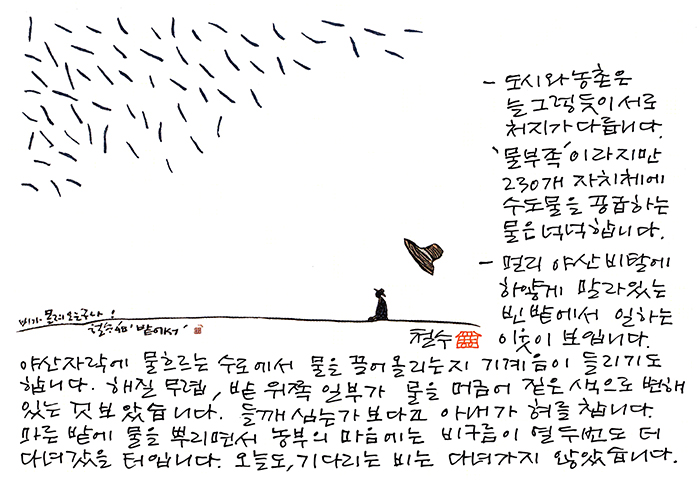 - 도시와 농촌은
늘 그렇듯이 서로
처지가 다릅니다.
'물부족'이라지만
230개 자치체에
수도물을 공급하는
물은 넉넉합니다.
- 멀리 야산 비탈에
하얗게 말라있는
빈 밭에서 일하는
이웃이 보입니다.
비가 몰려오는구나!
철수 '밭에서'
철수
야산자락에 물흐르는 수로에서 물을 끌어올리는지 기계음이 들리기도
합니다. 해질 무렵, 밭 위쪽 일부가 물을 머금어 짙은 색으로 변해
있는 것 보았습니다. 들깨 심는가 보다고 아내가 혀를 찹니다.
마른 밭에 물을 뿌리면서 농부의 마음에는 비구름이 열두번도 더
다녀갔을 터입니다. 오늘도, 기다리는 비는 다녀가지 않았습니다.